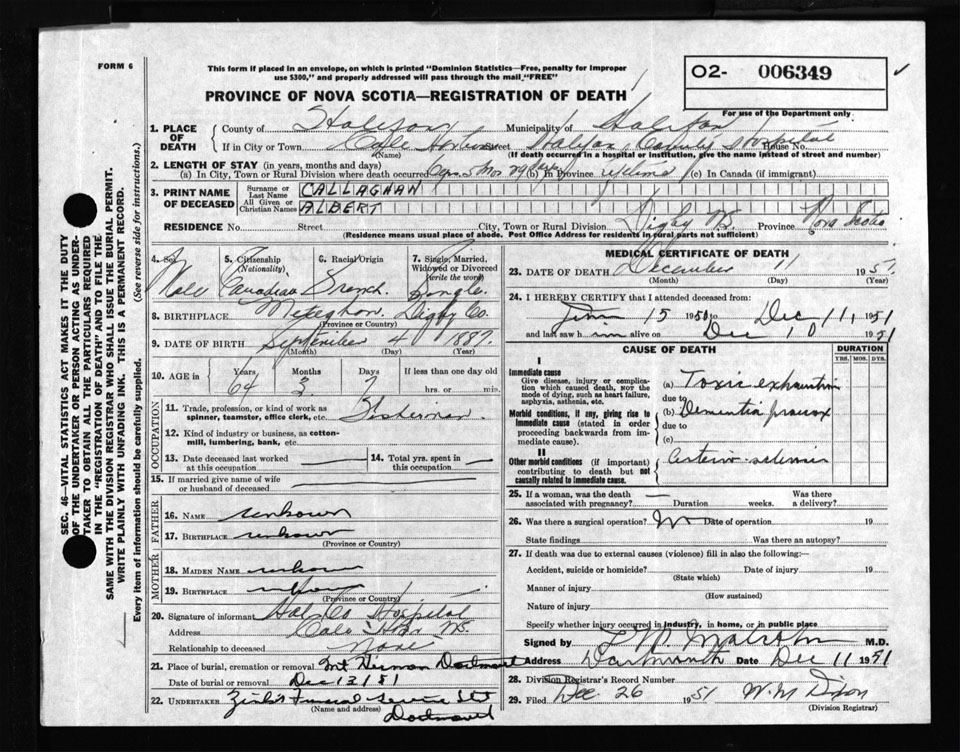 FORM 6
This form if placed in an envelope, on which is printed "Dominion Statistics—Free, penalty for improper
use $300," and properly addressed will pass through the mail "FREE"
O2- 006349
PROVINCE OF NOVA SCOTIA—REGISTRATION OF DEATH
For use of the Department only
1. PLACE OF DEATH
County of Halifax Municipality of Halifax
If in City or Town Cole Harbour Street Halifax County Hospital House No.
(Name) (If death occurred in a hospital or institution, give its name instead of street and number)
2. LENGTH OF STAY (in years, months and days)
(a) In City, Town or Rural Division where death occurred 5 Mos 29 days (b) in Province (c) In Canada (if immigrant)
3. PRINT NAME OF DECEASED
Surname or Last Name CALLAGHAN
All Given or Christian Names ALBERT
RESIDENCE No. Street City, Town or Rural Division Digby Province Nova Scotia
(Residence means usual place of abode. Post Office Address for residents in rural parts not sufficient)
4. Sex 5. Citizenship (Nationality) 6. Racial Origin 7. Single, Married, Widowed or Divorced (write the word)
Male Canadian French Single
8. BIRTHPLACE Meteghan, Digby Co.
(Province or Country)
9. DATE OF BIRTH September 4 1887
(Month) (Day) (Year)
10. AGE in Years Months Days If less than one day old
64 3 7 hrs. or min.
OCCUPATION
11. Trade, profession, or kind of work as spinner, teamster, office clerk, etc. Fisherman
12. Kind of industry or business, as cotton-mill, lumbering, bank, etc.
13. Date deceased last worked at this occupation 14. Total yrs. spent in this occupation
15. If married give name of wife or husband of deceased
FATHER
16. NAME unknown
17. BIRTHPLACE unknown
(Province or Country)
MOTHER
18. MAIDEN NAME unknown
19. BIRTHPLACE unknown
(Province or Country)
20. Signature of informant Hal Co Hospital
Address Cole Hbr NS.
Relationship to deceased None
21. Place of burial, cremation or removal Mt Herman Dartmouth
Date of burial or removal Dec 13/51
22. UNDERTAKER Zink's Funeral Service
(Name and address) Dartmouth
MEDICAL CERTIFICATE OF DEATH
23. DATE OF DEATH December 11 1951
(Month) (Day) (Year)
24. I HEREBY CERTIFY that I attended deceased from:
15 1951 to Dec 11, 1951
and last saw him alive on Dec 10 1951
CAUSE OF DEATH DURATION
YRS. MOS. DYS.
I
Immediate cause
Give disease, injury or complication which caused death, NOT the mode of dying, such as heart failure, asphyxia, asthenia, etc.
(a) Toxic exhaustion
due to
Morbid conditions, if any, giving rise to immediate cause (stated in order proceeding backwards from immediate cause).
(b) Dementia praecox
due to
(c)
II
Other morbid conditions (if important) contributing to death but not causally related to immediate cause.
Arterio-sclerosis
25. If a woman, was the death associated with pregnancy? Duration weeks. Was there a delivery?
26. Was there a surgical operation? No Date of operation 19
State findings Was there an autopsy?
27. If death was due to external causes (violence) fill in also the following:—
Accident, suicide or homicide? Date of injury 19
(State which)
Manner of injury
(How sustained)
Nature of injury
Specify whether injury occurred in industry, in home, or in public place
Signed by M.D.
Address Dartmouth Date Dec 11 1951
28. Division Registrar's Record Number
29. Filed Dec 26 1951 W. M. Dixon
(Division Registrar)
SEC. 46—VITAL STATISTICS ACT MAKES IT THE DUTY
OF THE UNDERTAKER OR PERSON ACTING AS UNDER-
TAKER TO OBTAIN ALL THE PARTICULARS REQUIRED
IN THE "REGISTRATION OF DEATH" AND TO FILE THE
SAME WITH THE DIVISION REGISTRAR WHO SHALL ISSUE THE BURIAL PERMIT.
WRITE PLAINLY WITH UNFADING INK. THIS IS A PERMANENT RECORD.
Every item of information should be carefully supplied. (See reverse side for instructions.)